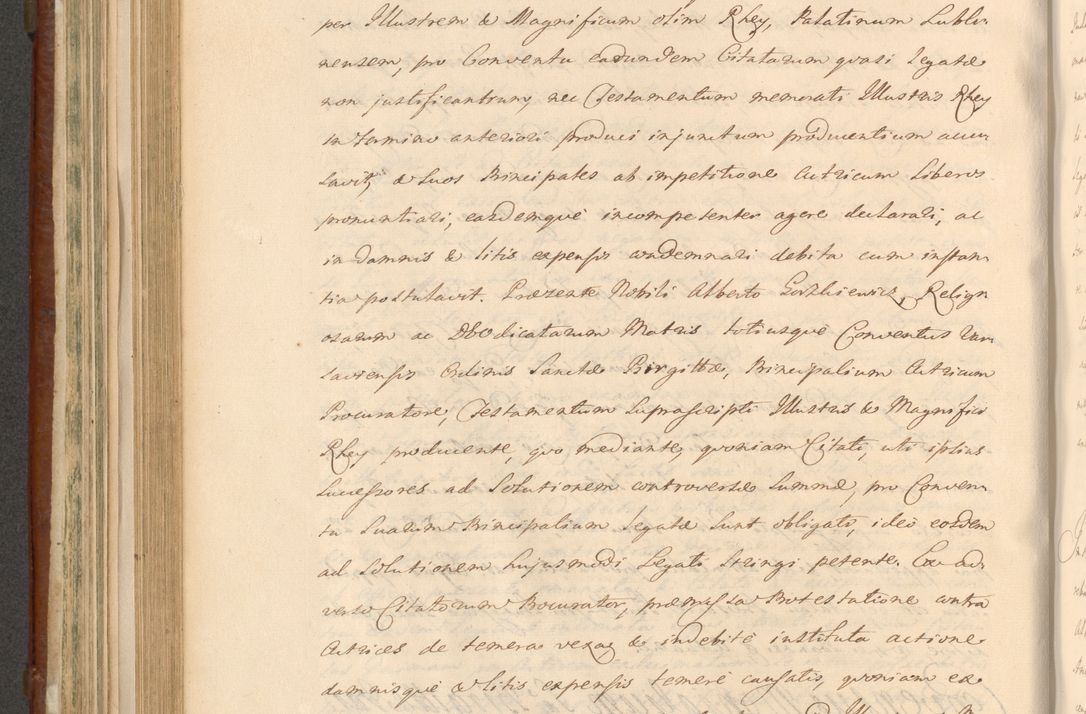 per Illustrem & Magnificum olim Rhey, Palatinum Lubli=
nensem, pro Conventu earundem Citatarum quasi legatæ
non justificantium, nec Testamentum memorati Illustris Rhey
in termino anteriori produci injunctum producentium accu=
savit, & suos Principales ab impetitione Actricum liberos
pronuntiari, easdemque incompetenter agere declarari, ac
in damnis & litis expensis condemnari debita cum instan=
tia postulavit. Præsente Nobili Alberto Gorzkiewicz, Religi=
osarum ac Deo dicatarum Matris totiusque Conventus Var=
saviensis Ordinis Sanctæ Birgittæ, Principalium Actricum
Procuratore, Testamentum suprascripti Illustris & Magnifici
Rhey producente, quo mediante, quoniam Citati, uti ipsius
Successores ad Solutionem controversæ Summæ, pro Conven=
tu Suarum Principalium legatæ sunt obligati, ideo eosdem
ad Solutionem hujusmodi Legati stringi petente. Ex ad
verso Citatorum Procurator, præmissa Protestatione contra
Actrices de temere vexa, & indebite instituta actione
damnisque & litis expensis temere causatis, quoniam ex